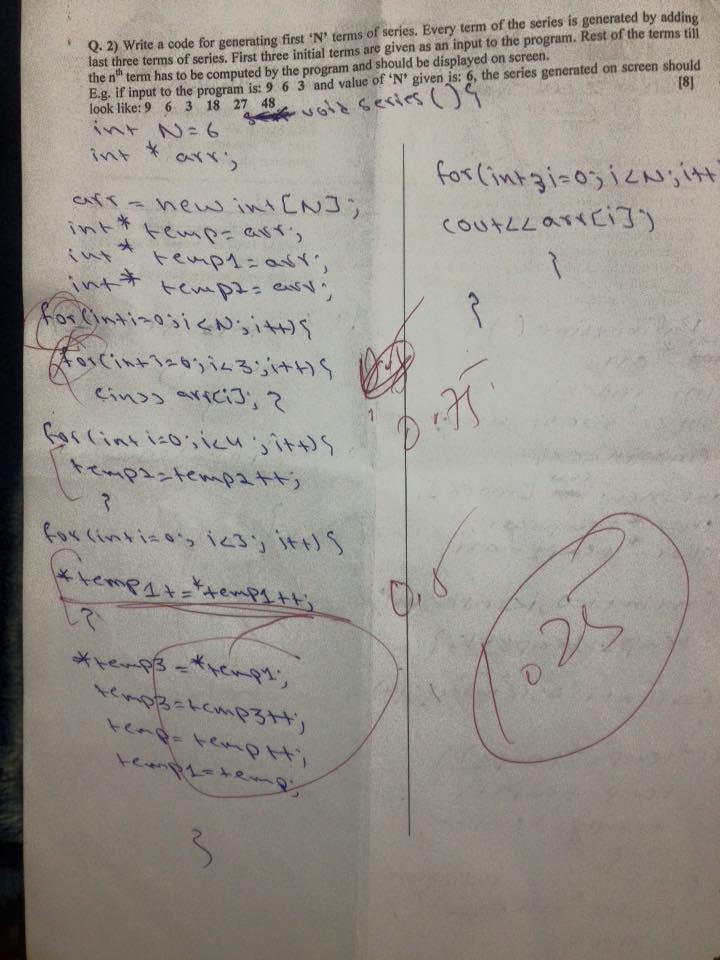 Q. 2) Write a code for generating first 'N' terms of series. Every term of the series is generated by adding
last three terms of series. First three initial terms are given as an input to the program. Rest of the terms till
the nth term has to be computed by the program and should be displayed on screen.
E.g. if input to the program is: 9 6 3 and value of 'N' given is: 6, the series generated on screen should
look like: 9 6 3 18 27 48
[8]
void series(){
int N=6
int * arr;
arr = new int[N];
int* temp= arr;
int* temp1=arr;
int* temp2= arr;
for(int i=0;i<N;i++){
for(int i=0;i<3;i++){
cin>> arr[i]; }
for(int i=0;i<4;i++){
temp2=temp2++;
}
for(int i=0; i<3; i++){
*temp1+=*temp1++;
}
*temp3=*temp1;
temp3=temp3++;
temp= temp++;
temp1=temp;
}
for(int i=0;i<N;i++
cout<<arr[i];
}
}
0.75